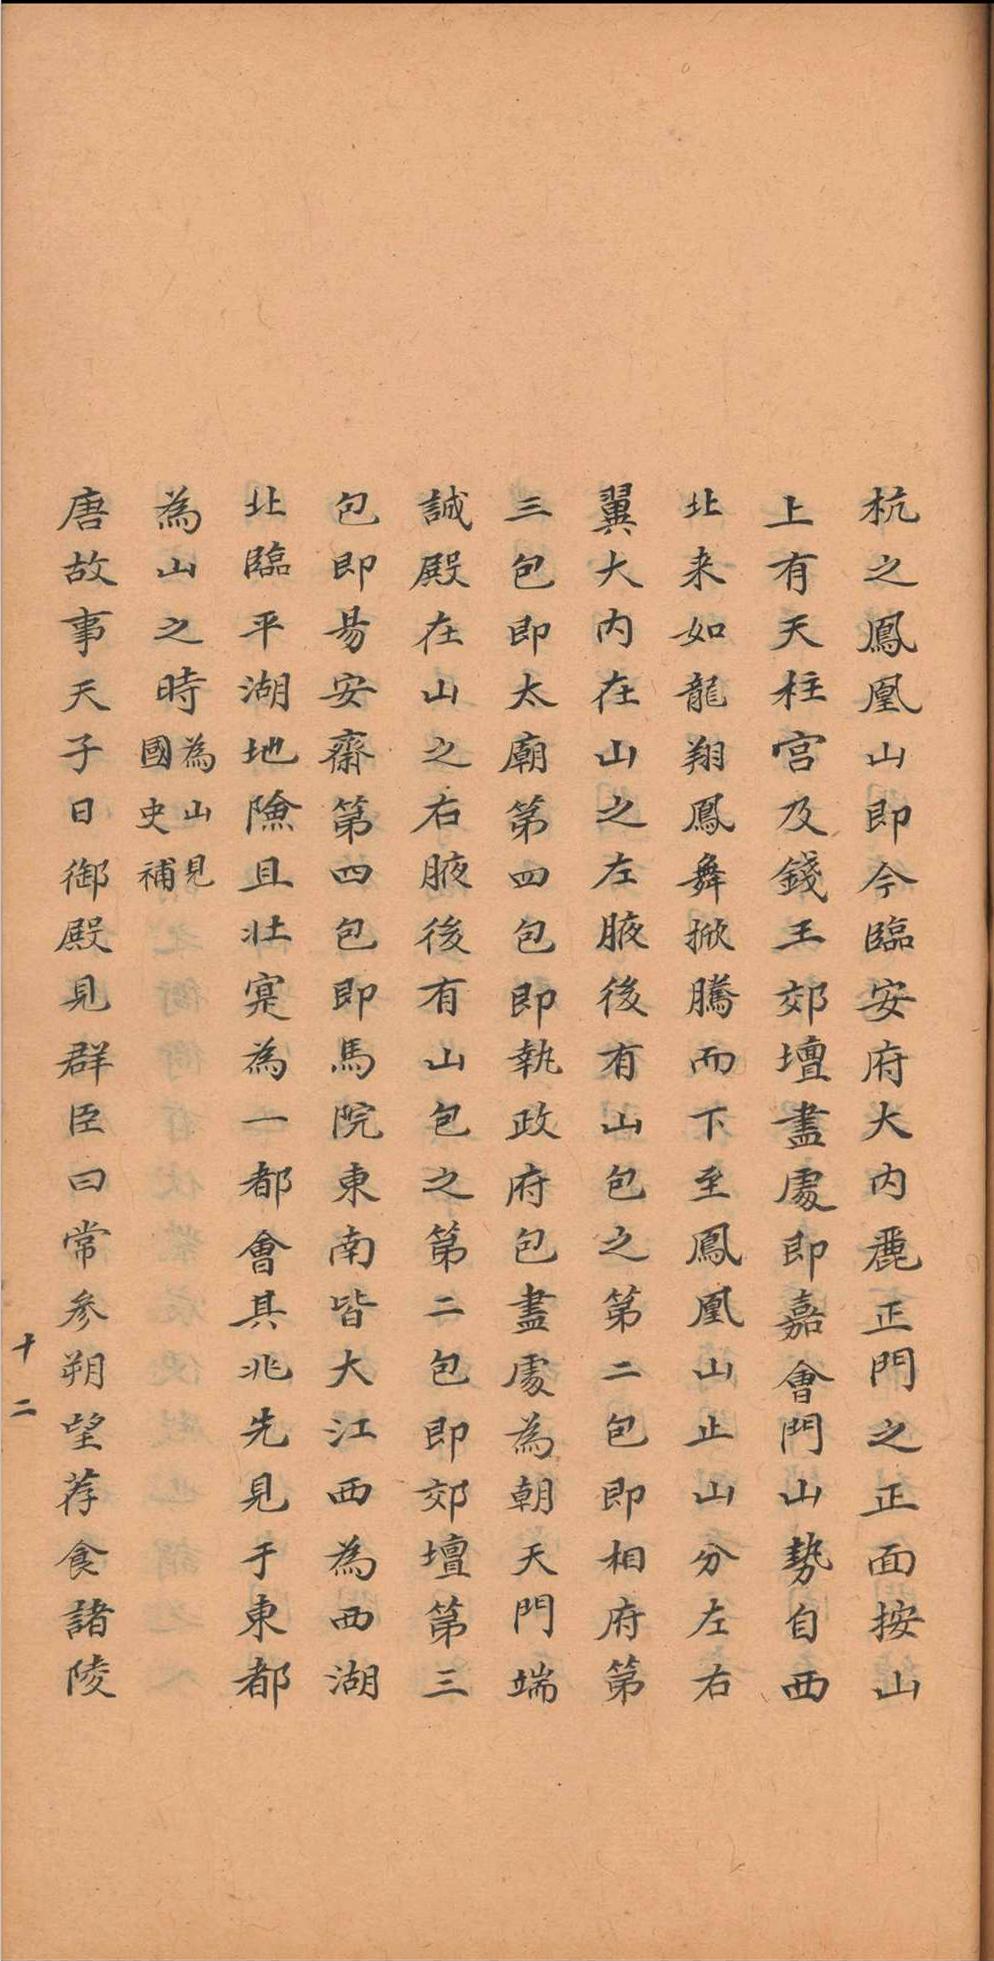 杭之鳳凰山即今臨安府大内麗正門之正面按山
上有天柱宮及錢王郊壇盡處即嘉會門山勢自西
北来如龍翔鳳舞掀騰而下至鳳凰山止山分左右
翼大内在山之左腋後有山包之第二包即相府第
三包即太廟第四包即執政府包盡處為朝天門端
誠殿在山之右腋後有山包之第二包即郊壇第三
包即易安齋第四包即馬院東南皆大江西為西湖
北臨平湖地險且壮寔為一都會其兆先見于東都
為山之時為山見國史補
唐故事天子日御殿見群臣曰常参朔望荐食諸陵
十二